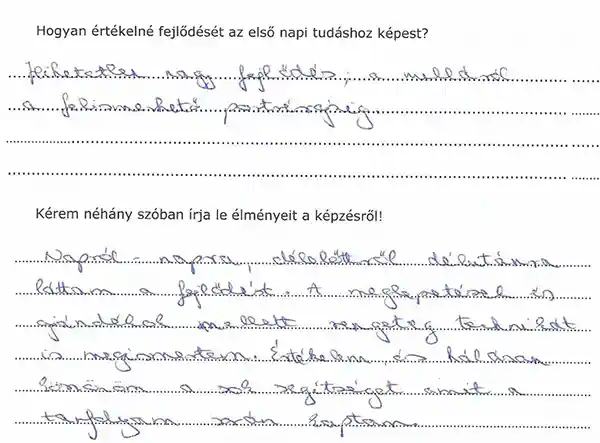 Hogyan értékelné fejlődését az első napi tudáshoz képest?
Hihetetlen nagy fejlődés, a nulláról
a felismerhető portrérajzig
Kérem néhány szóban írja le élményeit a képzésről!
Napról - napra, délelőttről délutánra
láttam a fejlődést. A meglepetések és
ajándékok mellett rengeteg technikát
is megismertem. Értékelem, és hálásan
köszönöm a sok segítséget amit a
tanfolyam során kaptam.